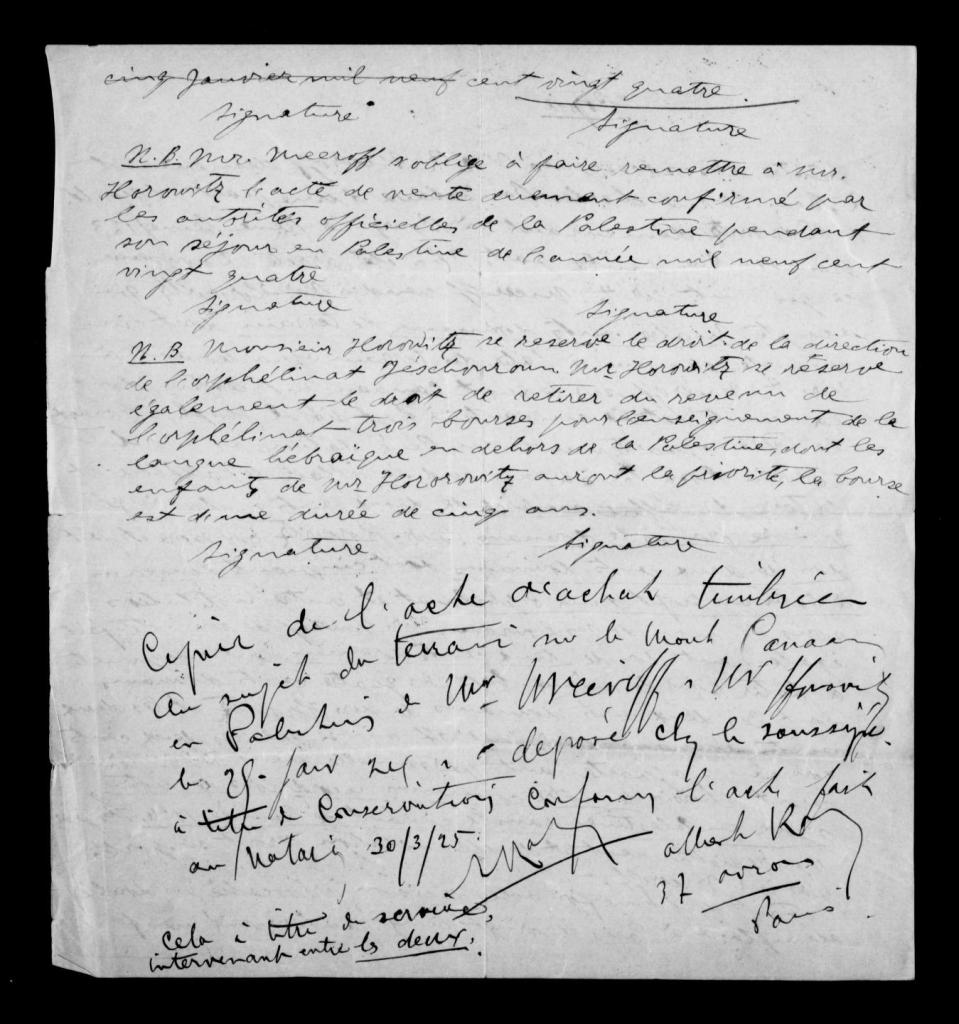 cinq Janvier mil neuf cent vingt quatre.
Signature Signature
N.B. Mr. Meeroff s'oblige à faire remettre à Mr.
Horowitz l'acte de vente dument confirmé par
les autorités officielles de la Palestine pendant
son séjour en Palestine de l'année mil neuf cent
vingt quatre
Signature Signature
N.B. Monsieur Horowitz se reserve le droit de la direction
de l'orphélinat Jéschouroun Mr Horowitz se réserve
également le droit de retirer du revenu de
l'orphélinat trois bourses pour l'enseignement de la
langue hébraïque en dehors de la Palestine, dont les
enfants de Mr Hororowitz auront la priorité, la bourse
est d'une durée de cinq ans.
Signature Signature
de l'acte d'achat
Au sujet du terrain sur le Mont Canaan
en Palestine de Mr Meeroff à Mr Horovitz
le 25 Janv 24 déposé chez le soussigné
à titre de Conservation l'acte fait
au Notari 30/3/25
Albert
37
Paris
Cela à titre de service,
intervenant entre les deux.